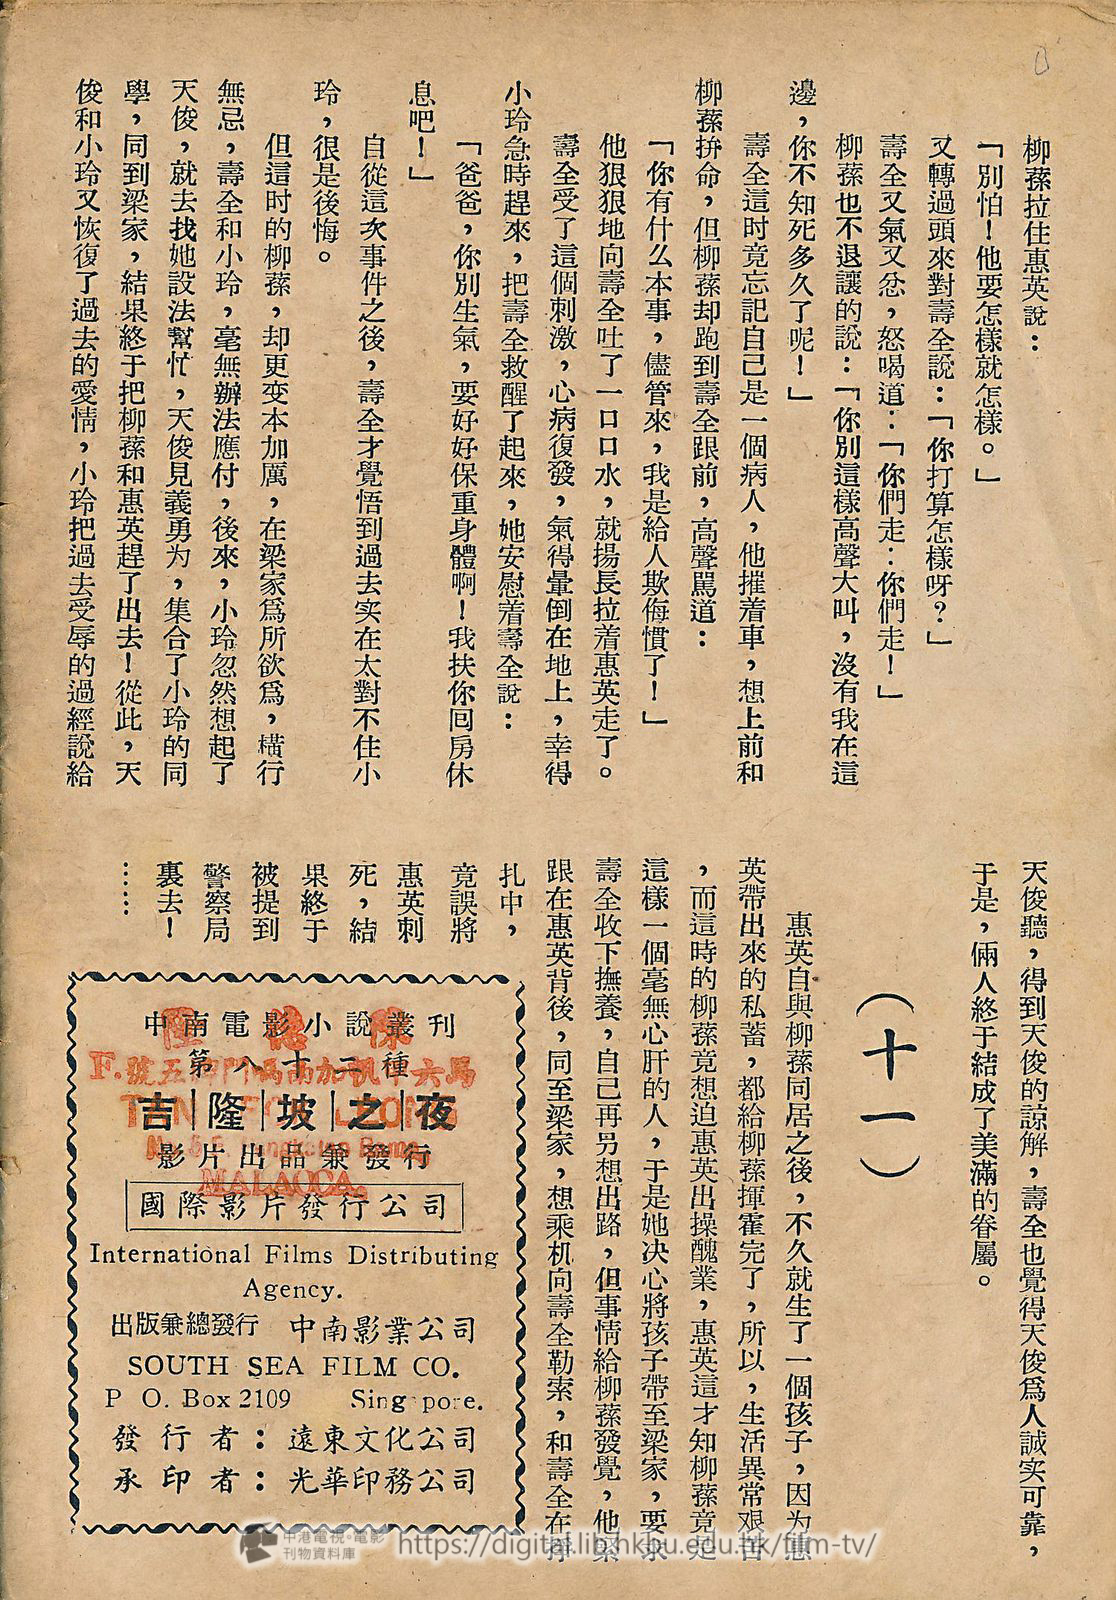 柳蓀拉住惠英說：
「別怕！他要怎樣就怎樣。」
又轉過頭來對壽全說：「你打算怎樣呀？」
壽全又氣又忿，怒喝道：「你們走：你們走！」
柳蓀也不退讓的說：「你別這樣高聲大叫，沒有我在這
邊，你不知死多久了呢！」
壽全這时竟忘記自己是一個病人，他摧着車，想上前和
柳蓀拚命，但柳蓀却跑到壽全跟前，高聲駡道：
「你有什么本事，儘管來，我是給人欺侮慣了！」
他狠狠地向壽全吐了一口口水，就揚長拉着惠英走了。
壽全受了這個刺激，心病復發，氣得暈倒在地上，幸得
小玲急時趕來，把壽全救醒了起來，她安慰着壽全說：
「爸爸，你別生氣，要好好保重身體啊！我扶你回房休
息吧！」
自從這次事件之後，壽全才覺悟到過去实在太對不住小
玲，很是後悔。
但這时的柳蓀，却更变本加厲，在梁家爲所欲爲，橫行
無忌，壽全和小玲，毫無辦法應付，後來，小玲忽然想起了
天俊，就去找她設法幫忙，天俊見義勇为，集合了小玲的同
學，同到梁家，結果終于把柳蓀和惠英趕了出去！從此，天
俊和小玲又恢復了過去的愛情，小玲把過去受辱的過經說給
天俊聽，得到天俊的諒解，壽全也覺得天俊爲人誠实可靠，
于是，倆人終于結成了美滿的眷屬。
（十一）
惠英自與柳蓀同居之後，不久就生了一個孩子，因为惠
英帶出來的私蓄，都給柳蓀揮霍完了，所以，生活異常艰苦
，而這時的柳蓀竟想迫惠英出操醜業，惠英這才知柳蓀竟是
這樣一個毫無心肝的人，于是她决心將孩子帶至梁家，要求
壽全收下撫養，自己再另想出路，但事情給柳蓀發覺，他緊
跟在惠英背後，同至梁家，想乘机向壽全勒索，和壽全在掙
扎中，
竟誤將
惠英刺
死，結
果終于
被提到
警察局
裏去！
……
中南電影小說叢刊
第八十二種
吉隆坡之夜
影片出品兼發行
國際影片發行公司
International Films Distributing
Agency.
出版兼總發行 中南影業公司
SOUTH SEA FILM CO.
P O. Box 2109 Singapore.
發行者：遠東文化公司
承印者：光華印務公司
MALACCA.
中港電視·電影
刊物資料庫
https://digital.lib.hkbu.edu.hk/film-tv/